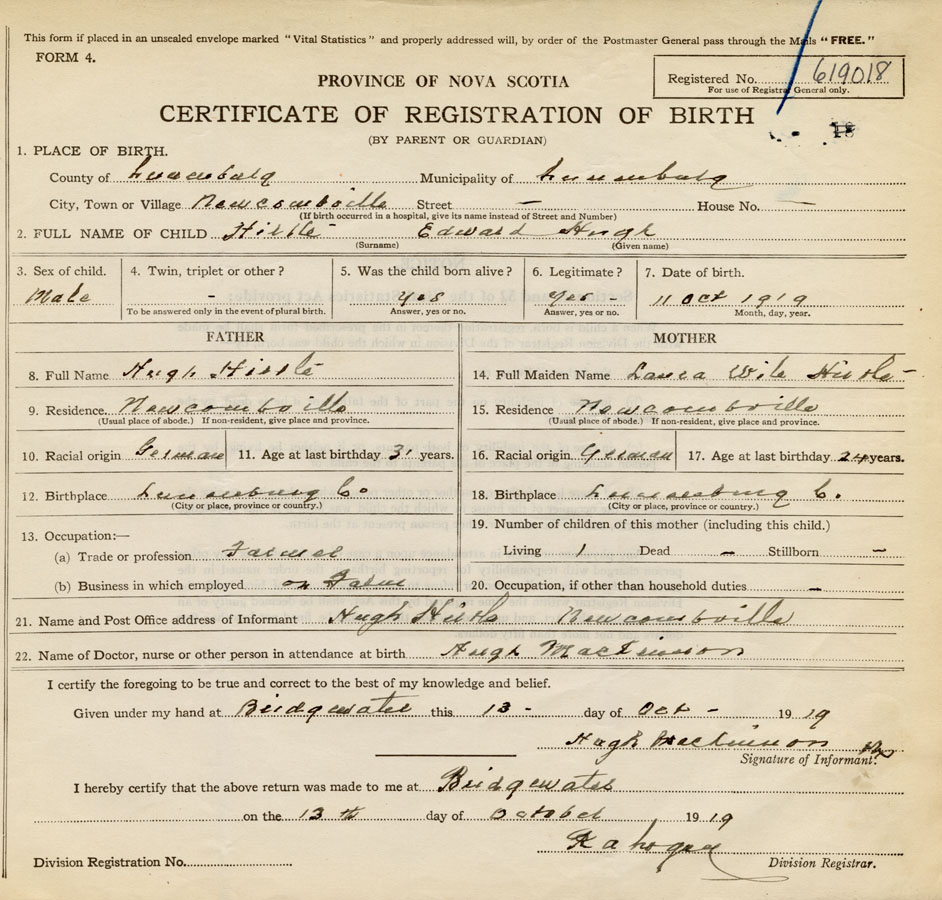 This form if placed in an unsealed envelope marked "Vital Statistics" and properly addressed will, by order of the Postmaster General pass through the Mails "FREE."
FORM 4.
PROVINCE OF NOVA SCOTIA
Registered No. 619018
For use of Registrar General only.
CERTIFICATE OF REGISTRATION OF BIRTH
(BY PARENT OR GUARDIAN)
1. PLACE OF BIRTH.
County of Lunenburg Municipality of Lunenburg
City, Town or Village Newcombville Street — House No. —
(If birth occurred in a hospital, give its name instead of Street and Number)
2. FULL NAME OF CHILD Hirtle Edward Hugh
(Surname) (Given name)
3. Sex of child. 4. Twin, triplet or other? 5. Was the child born alive? 6. Legitimate? 7. Date of birth.
Male - Yes Yes - 11 Oct 1919
To be answered only in the event of plural birth. Answer, yes or no. Answer, yes or no. Month, day, year.
FATHER MOTHER
8. Full Name Hugh Hirtle 14. Full Maiden Name Laura Wile Hirtle -
9. Residence Newcombville 15. Residence Newcombville
(Usual place of abode.) If non-resident, give place and province. (Usual place of abode.) If non-resident, give place and province.
10. Racial origin German 11. Age at last birthday 31 years. 16. Racial origin German 17. Age at last birthday 24 years.
12. Birthplace Lunenburg Co. 18. Birthplace Lunenburg C.
(City or place, province or country.) (City or place, province or country.)
13. Occupation:— 19. Number of children of this mother (including this child.)
(a) Trade or profession Farmer Living 1 Dead — Stillborn —
(b) Business in which employed on Farm 20. Occupation, if other than household duties —
21. Name and Post Office address of Informant Hugh Hirtle Newcombville
22. Name of Doctor, nurse or other person in attendance at birth Hugh MacKinnon
I certify the foregoing to be true and correct to the best of my knowledge and belief.
Given under my hand at Bridgewater this 13 - day of Oct - 1919
Hugh MacKinnon
Signature of Informant.
I hereby certify that the above return was made to me at Bridgewater
on the 13th day of October 1919
Division Registration No. Division Registrar.